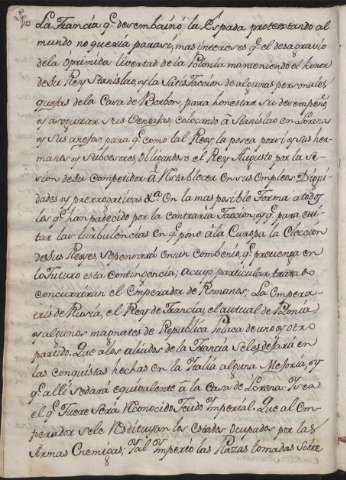 La Francia q.e desembainó la Espada protestando al
mundo no queria para si, mas interes q.e el desagravio
de la oprimida libertad de la Polonia manteniendo el honor
de su Rey Stanislao y la satisfaccion de algunas personales
quejas de la Casa de Borbon, para honestar su desempeño
y asegurar sus colocando á Stanislao en Lorena
y sus anejas, para q.e como tal Rey, la posea per si y sus her
manos y subcesores obligandose el Rey Augusto por la se
sion de su Competidor á Restablecer en sus empleos, Digni
dades y prerrogativas &a En la mas posible forma á todos
los q.e han padecido por la contraria faccion, y q.e para evi
tar las turbulencias en q.e pone á la Europa la Eleccion
de sus Reyes, se pondrá en un combenio q.e prevenga en
lo futuro esta contingencia; a cuyo particular tratado
concurrirán el Emperador de Romanos, La Empera
triz de Rusia, el Rey de Francia, el actual de Polonia
y algunos magnates de Republica Polaca de uno y otro
partido. Que a los aliados de la Francia se les dejará en
las conquistas hechas en la Italia alguna Mejoria, y
q.e alli se dará equivalente á la Casa de Lorena Ysea
el q.e fuere será Reconocido feudo Imperial. Que al Em
perador se le Restituyan los Estados Ocupados por las
Armas Enemigas, y al Imperio las Plazas tomadas sobre